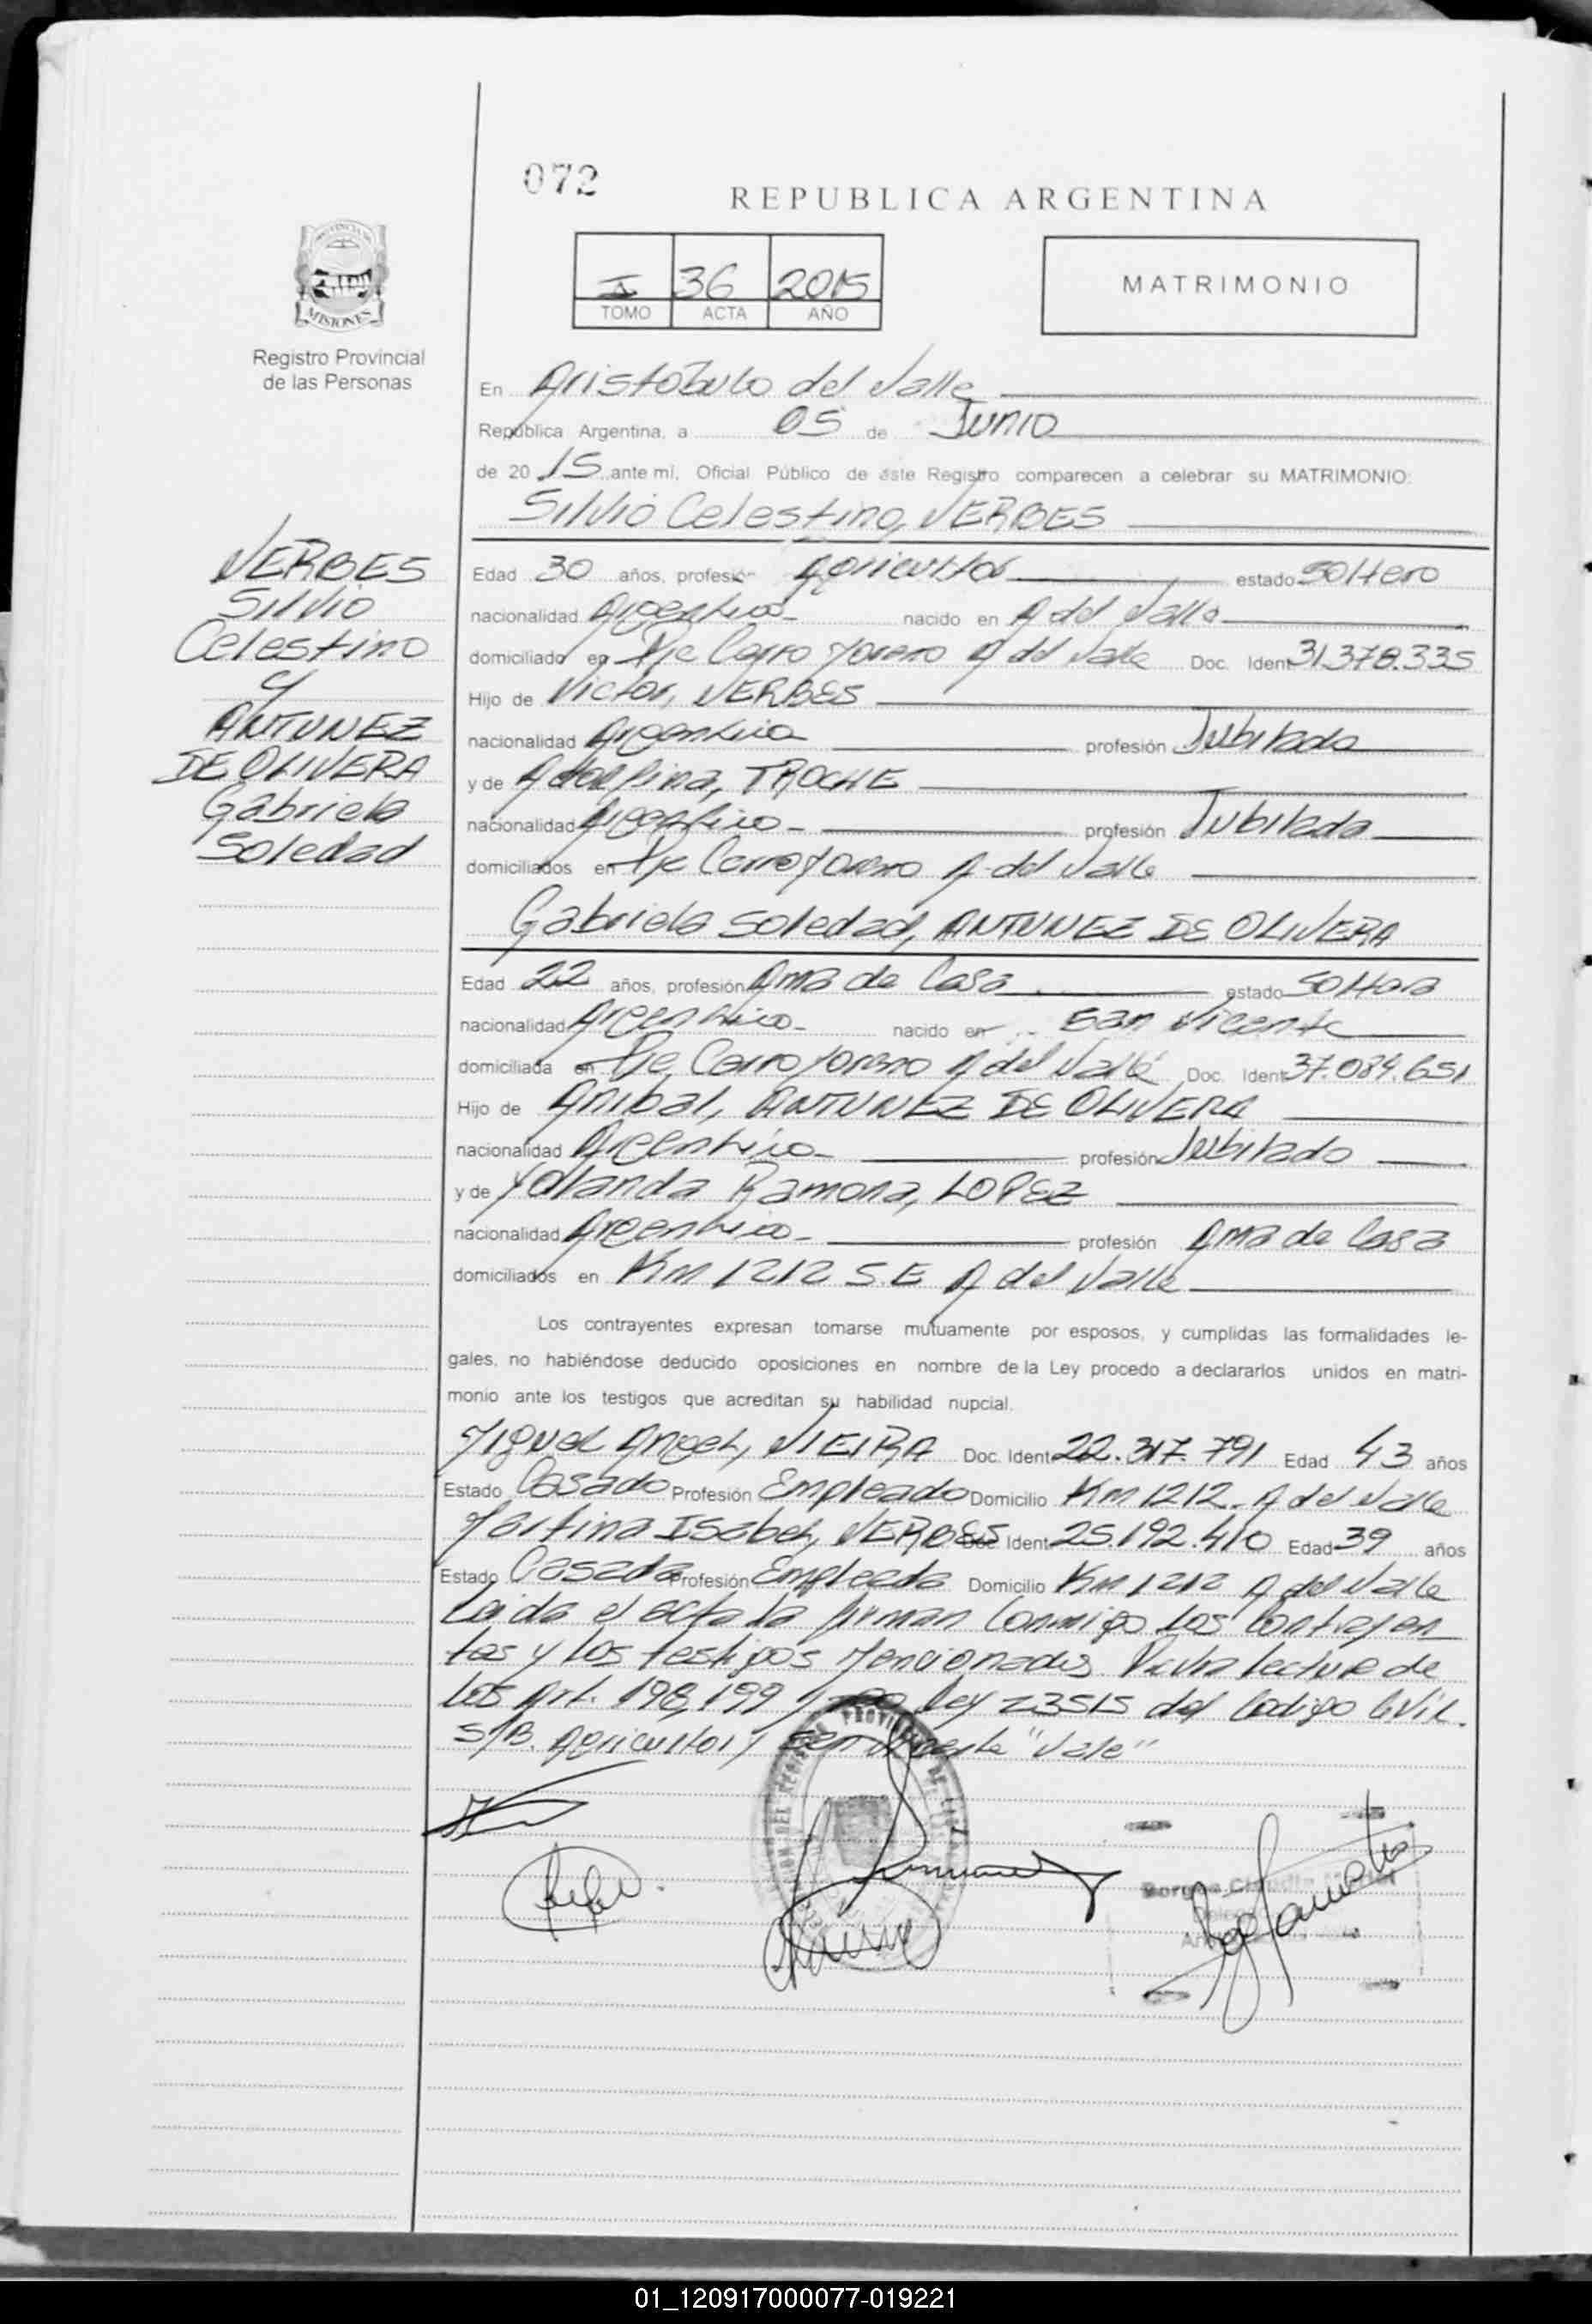 072
REPUBLICA ARGENTINA
MISIONES
Registro Provincial
de las Personas
I 36 2015
TOMO ACTA AÑO
MATRIMONIO
En Aristóbulo del Valle
República Argentina, a 05 de Junio
de 20 15 ante mí, Oficial Público de éste Registro comparecen a celebrar su MATRIMONIO:
Silvio Celestino, VERBES
VERBES
Silvio
Celestino
y
ANTUNEZ
DE OLIVERA
Gabriela
Soledad
Edad 30 años, profesión Agricultor estado Soltero
nacionalidad Argentina nacido en A del Valle
domiciliado en Pje Cerro Moreno A del Valle Doc. Ident 31.378.335
Hijo de Victor, VERBES
nacionalidad Argentina profesión Jubilado
y de Adolfina, TROCHE
nacionalidad Argentina profesión Jubilada
domiciliados en Pje Cerro Moreno A. del Valle
Gabriela Soledad, ANTUNEZ DE OLIVERA
Edad 22 años, profesión Ama de Casa estado Soltera
nacionalidad Argentina nacido en San Vicente
domiciliada en Pje Cerro Moreno A del Valle Doc. Ident 37.084.651
Hijo de Anibal, ANTUNEZ DE OLIVERA
nacionalidad Argentina profesión Jubilado
y de Yolanda Ramona, LOPEZ
nacionalidad Argentina profesión Ama de Casa
domiciliados en Km 1212 S.E A del Valle
Los contrayentes expresan tomarse mutuamente por esposos, y cumplidas las formalidades le-
gales, no habiéndose deducido oposiciones en nombre de la Ley procedo a declararlos unidos en matri-
monio ante los testigos que acreditan su habilidad nupcial.
Miguel Angel, VIEIRA Doc. Ident 22.317.791 Edad 43 años
Estado Casado Profesión Empleado Domicilio Km 1212 - A del Valle
Martina Isabel, VERBES Doc. Ident 25.192.410 Edad 39 años
Estado Casada Profesión Empleada Domicilio Km 1212 A del Valle
Leida el acta la firman Conmigo los Contrayen
tes y los testigos Mencionados. Previa lectura de
los Art. 198, 199 y Ley 23515 del Codigo Civil.
S/B. Agricultor y San Vicente "Vale"
01_120917000077-019221